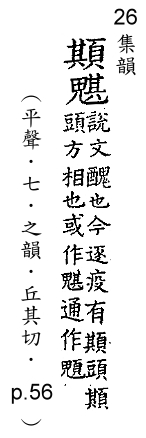 26
集韻
䫏魌
說文醜也今逐疫有䫏頭䫏
頭方相也或作魌通作
（平聲．七．之韻．丘其切．p.56）